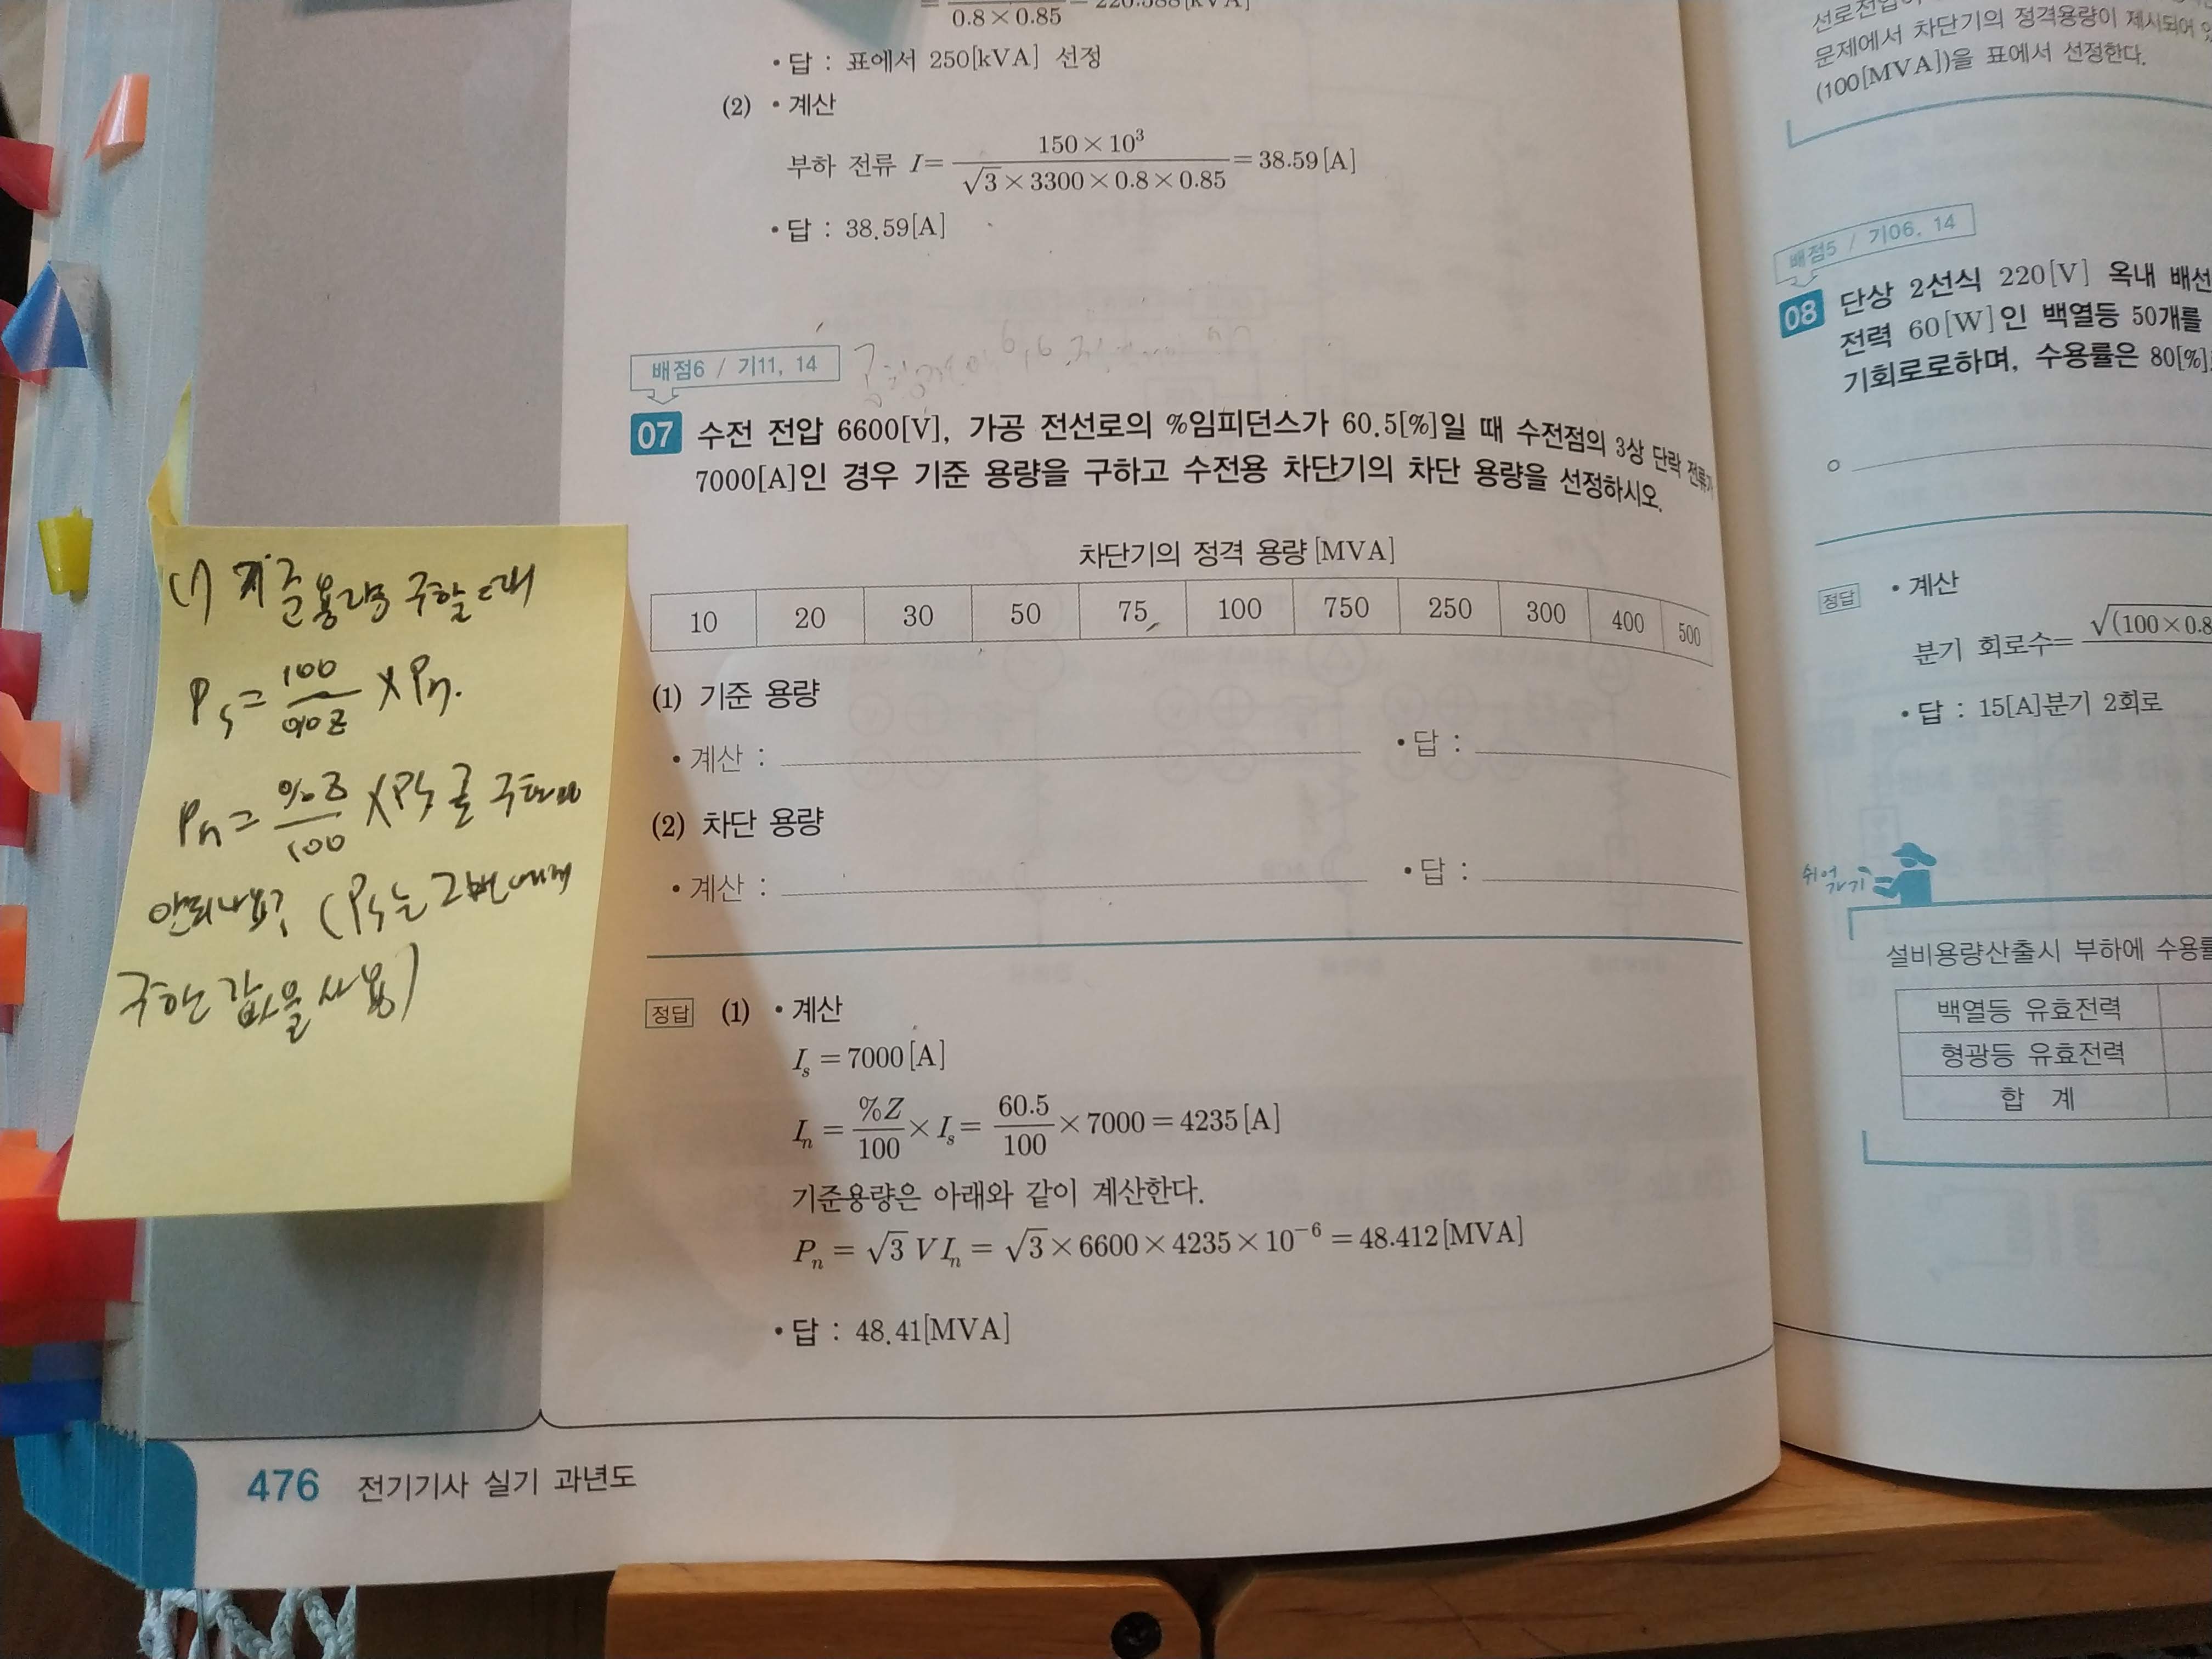 0.8×0.85
• 답 : 표에서 250[kVA] 선정
(2) • 계산
부하 전류 I= 150×10³ / √3×3300×0.8×0.85 =38.59[A]
• 답 : 38.59[A]
배점6 / 기11, 14
07 수전 전압 6600[V], 가공 전선로의 %임피던스가 60.5[%]일 때 수전점의 3상 단락 전류가
7000[A]인 경우 기준 용량을 구하고 수전용 차단기의 차단 용량을 선정하시오.
차단기의 정격 용량[MVA]
10 20 30 50 75 100 750 250 300 400 500
(1) 기준 용량
• 계산 : • 답 :
(2) 차단 용량
• 계산 : • 답 :
정답 (1) • 계산
Is =7000[A]
In = %Z/100 ×Is= 60.5/100 ×7000=4235[A]
기준용량은 아래와 같이 계산한다.
Pn = √3 VIn = √3×6600×4235×10⁻⁶ =48.412[MVA]
• 답 : 48.41[MVA]
476 전기기사 실기 과년도
(1) 기준용량 구할 때
Ps = 100/%Z × Pn.
Pn = %Z/100 × Ps로 구하면
안되나요? (Ps는 2번에서
구한 값을 사용)
문제에서 차단기의 정격용량이 제시되어
(100[MVA])을 표에서 선정한다.
배점5 / 기06, 14
08 단상 2선식 220[V] 옥내 배선
전력 60[W]인 백열등 50개를
기회로로하며, 수용률은 80[%]
정답 • 계산
분기 회로수= √(100×0.8
• 답 : 15[A]분기 2회로
쉬어가기
설비용량산출시 부하에 수용률
백열등 유효전력
형광등 유효전력
합 계